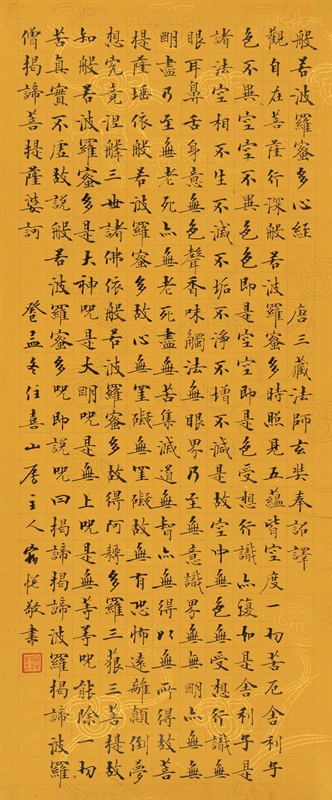 般若波羅蜜多心經 唐三藏法師玄奘奉詔譯
觀自在菩薩行深般若波羅蜜多時照見五蘊皆空度一切苦厄舍利子
色不異空空不異色色即是空空即是色受想行識亦復如是舍利子是
諸法空相不生不滅不垢不淨不增不減是故空中無色無受想行識無
眼耳鼻舌身意無色聲香味觸法無眼界乃至無意識界無無明亦無無
明盡乃至無老死亦無老死盡無苦集滅道無智亦無得以無所得故菩
提薩埵依般若波羅蜜多故心無罣礙無罣礙故無有恐怖遠離顛倒夢
想究竟涅槃三世諸佛依般若波羅蜜多故得阿耨多羅三藐三菩提故
知般若波羅蜜多是大神咒是大明咒是無上咒是無等等咒能除一切
苦真實不虛故說般若波羅蜜多咒即說咒曰揭諦揭諦波羅揭諦波羅
僧揭諦菩提薩婆訶 孟冬任喜山主人悅敬書